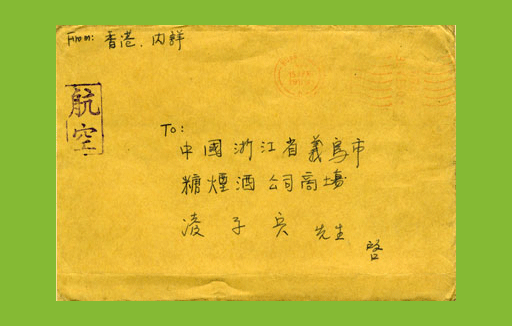 From: 香港、内詳
航空
To:
中國浙江省義烏市
糖煙酒公司商場
凌子兵 先生
啓